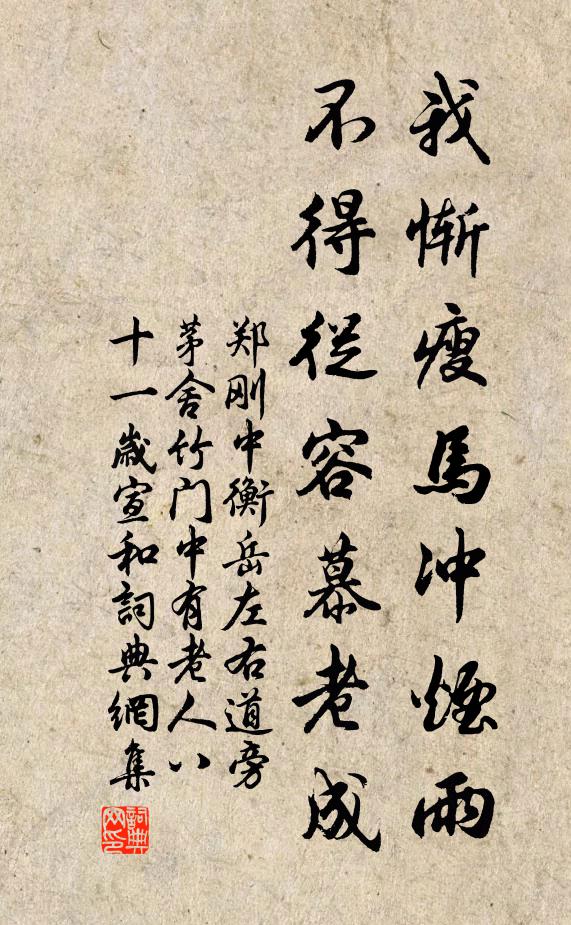 我慚瘦馬冲煙雨
不得從容慕老成
郑刚中衡岳左右道旁
茅舍竹门中有老人八
十一歲宣和詞典網集
詞典
网印